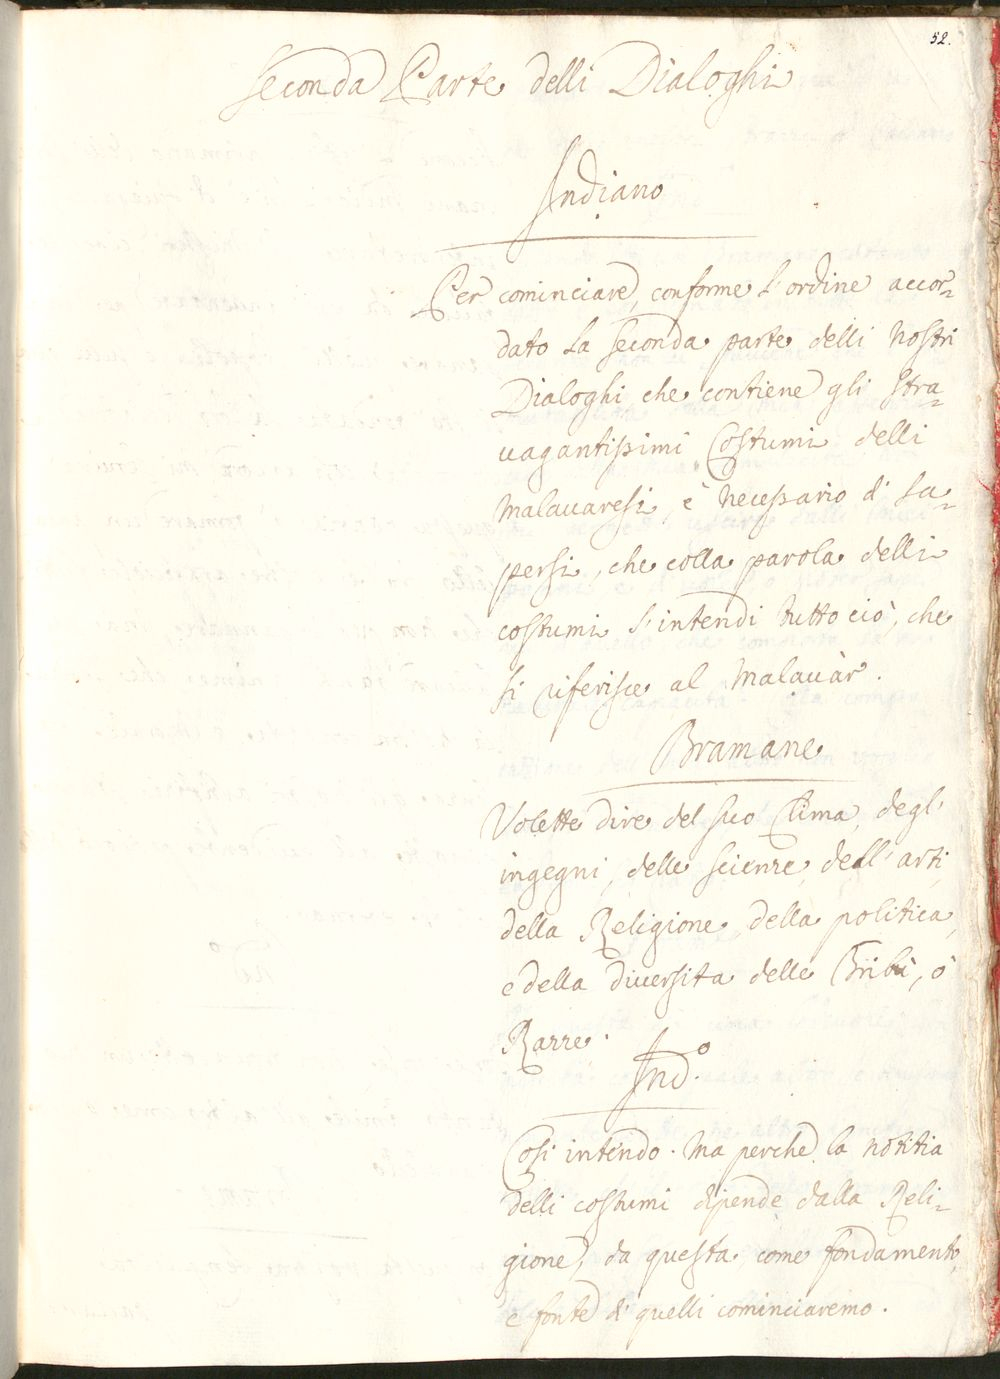 52.
Seconda Parte delli Dialoghi
Indiano
Per cominciare, conforme l'ordine accor=
dato la seconda parte delli nostri
Dialoghi che contiene gli stra=
uagantissimi Costumi delli
Malauaresi, è necessario di sa=
persi, che colla parola delli
costumi s'intendi tutto ciò, che
si riferisce al Malauàr.
Bramane
Volette dire del suo Clima, degl'
ingegni, delle scienze, dell'arti,
della Religione, della politica,
e della diuersita delle Tribù, ò
Razze.
Ind.o
Cosi intendo. Ma perche la notitia
delli costumi dipende dalla Reli=
gione, da questa, come fondamento,
e fonte di quelli cominciaremo.